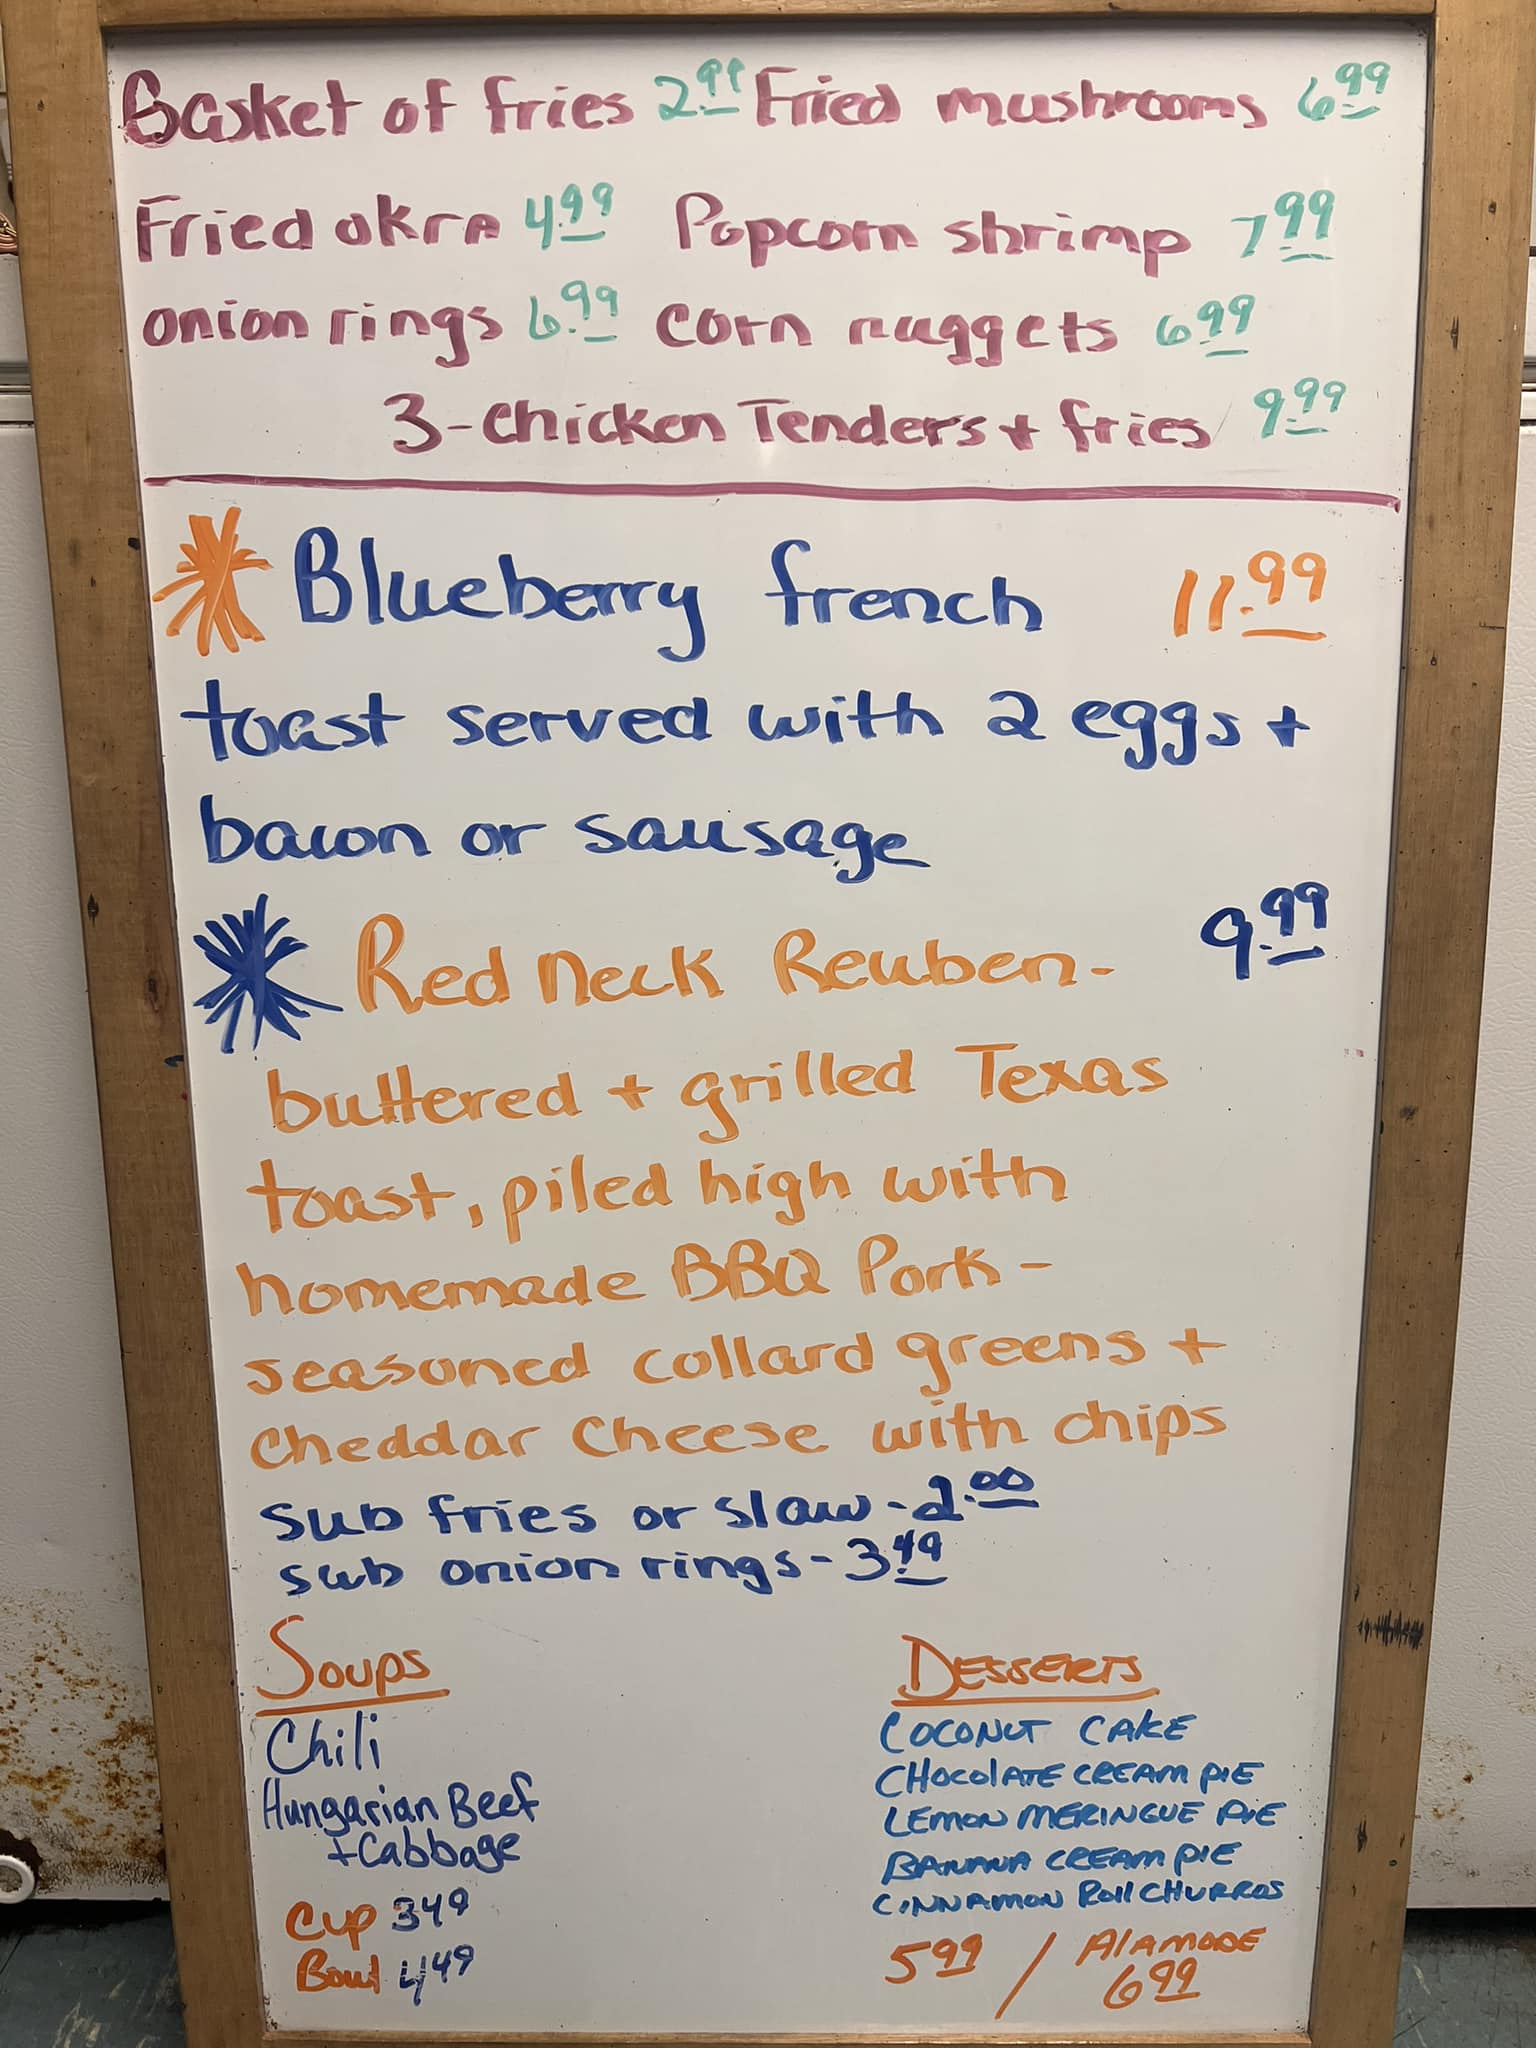 Basket of fries 2.99 Fried mushrooms 6.99
Fried okra 4.99 Popcorn shrimp 7.99
onion rings 6.99 corn nuggets 6.99
3-chicken Tenders + fries 9.99
Blueberry french 11.99
toast served with 2 eggs +
bacon or sausage
Red neck Reuben- 9.99
buttered + grilled Texas
toast, piled high with
homemade BBQ Pork-
seasoned collard greens +
cheddar cheese with chips
sub fries or slaw-2.00
sub onion rings-3.49
Soups
Chili
Hungarian Beef
+Cabbage
Cup 349
Bowl 449
DESSERTS
COCONUT CAKE
CHOCOLATE CREAM PIE
LEMON MERINGUE PIE
BANANA CREAM PIE
CINNAMON ROLL CHURROS
5 99 / ALAMODE
6 99